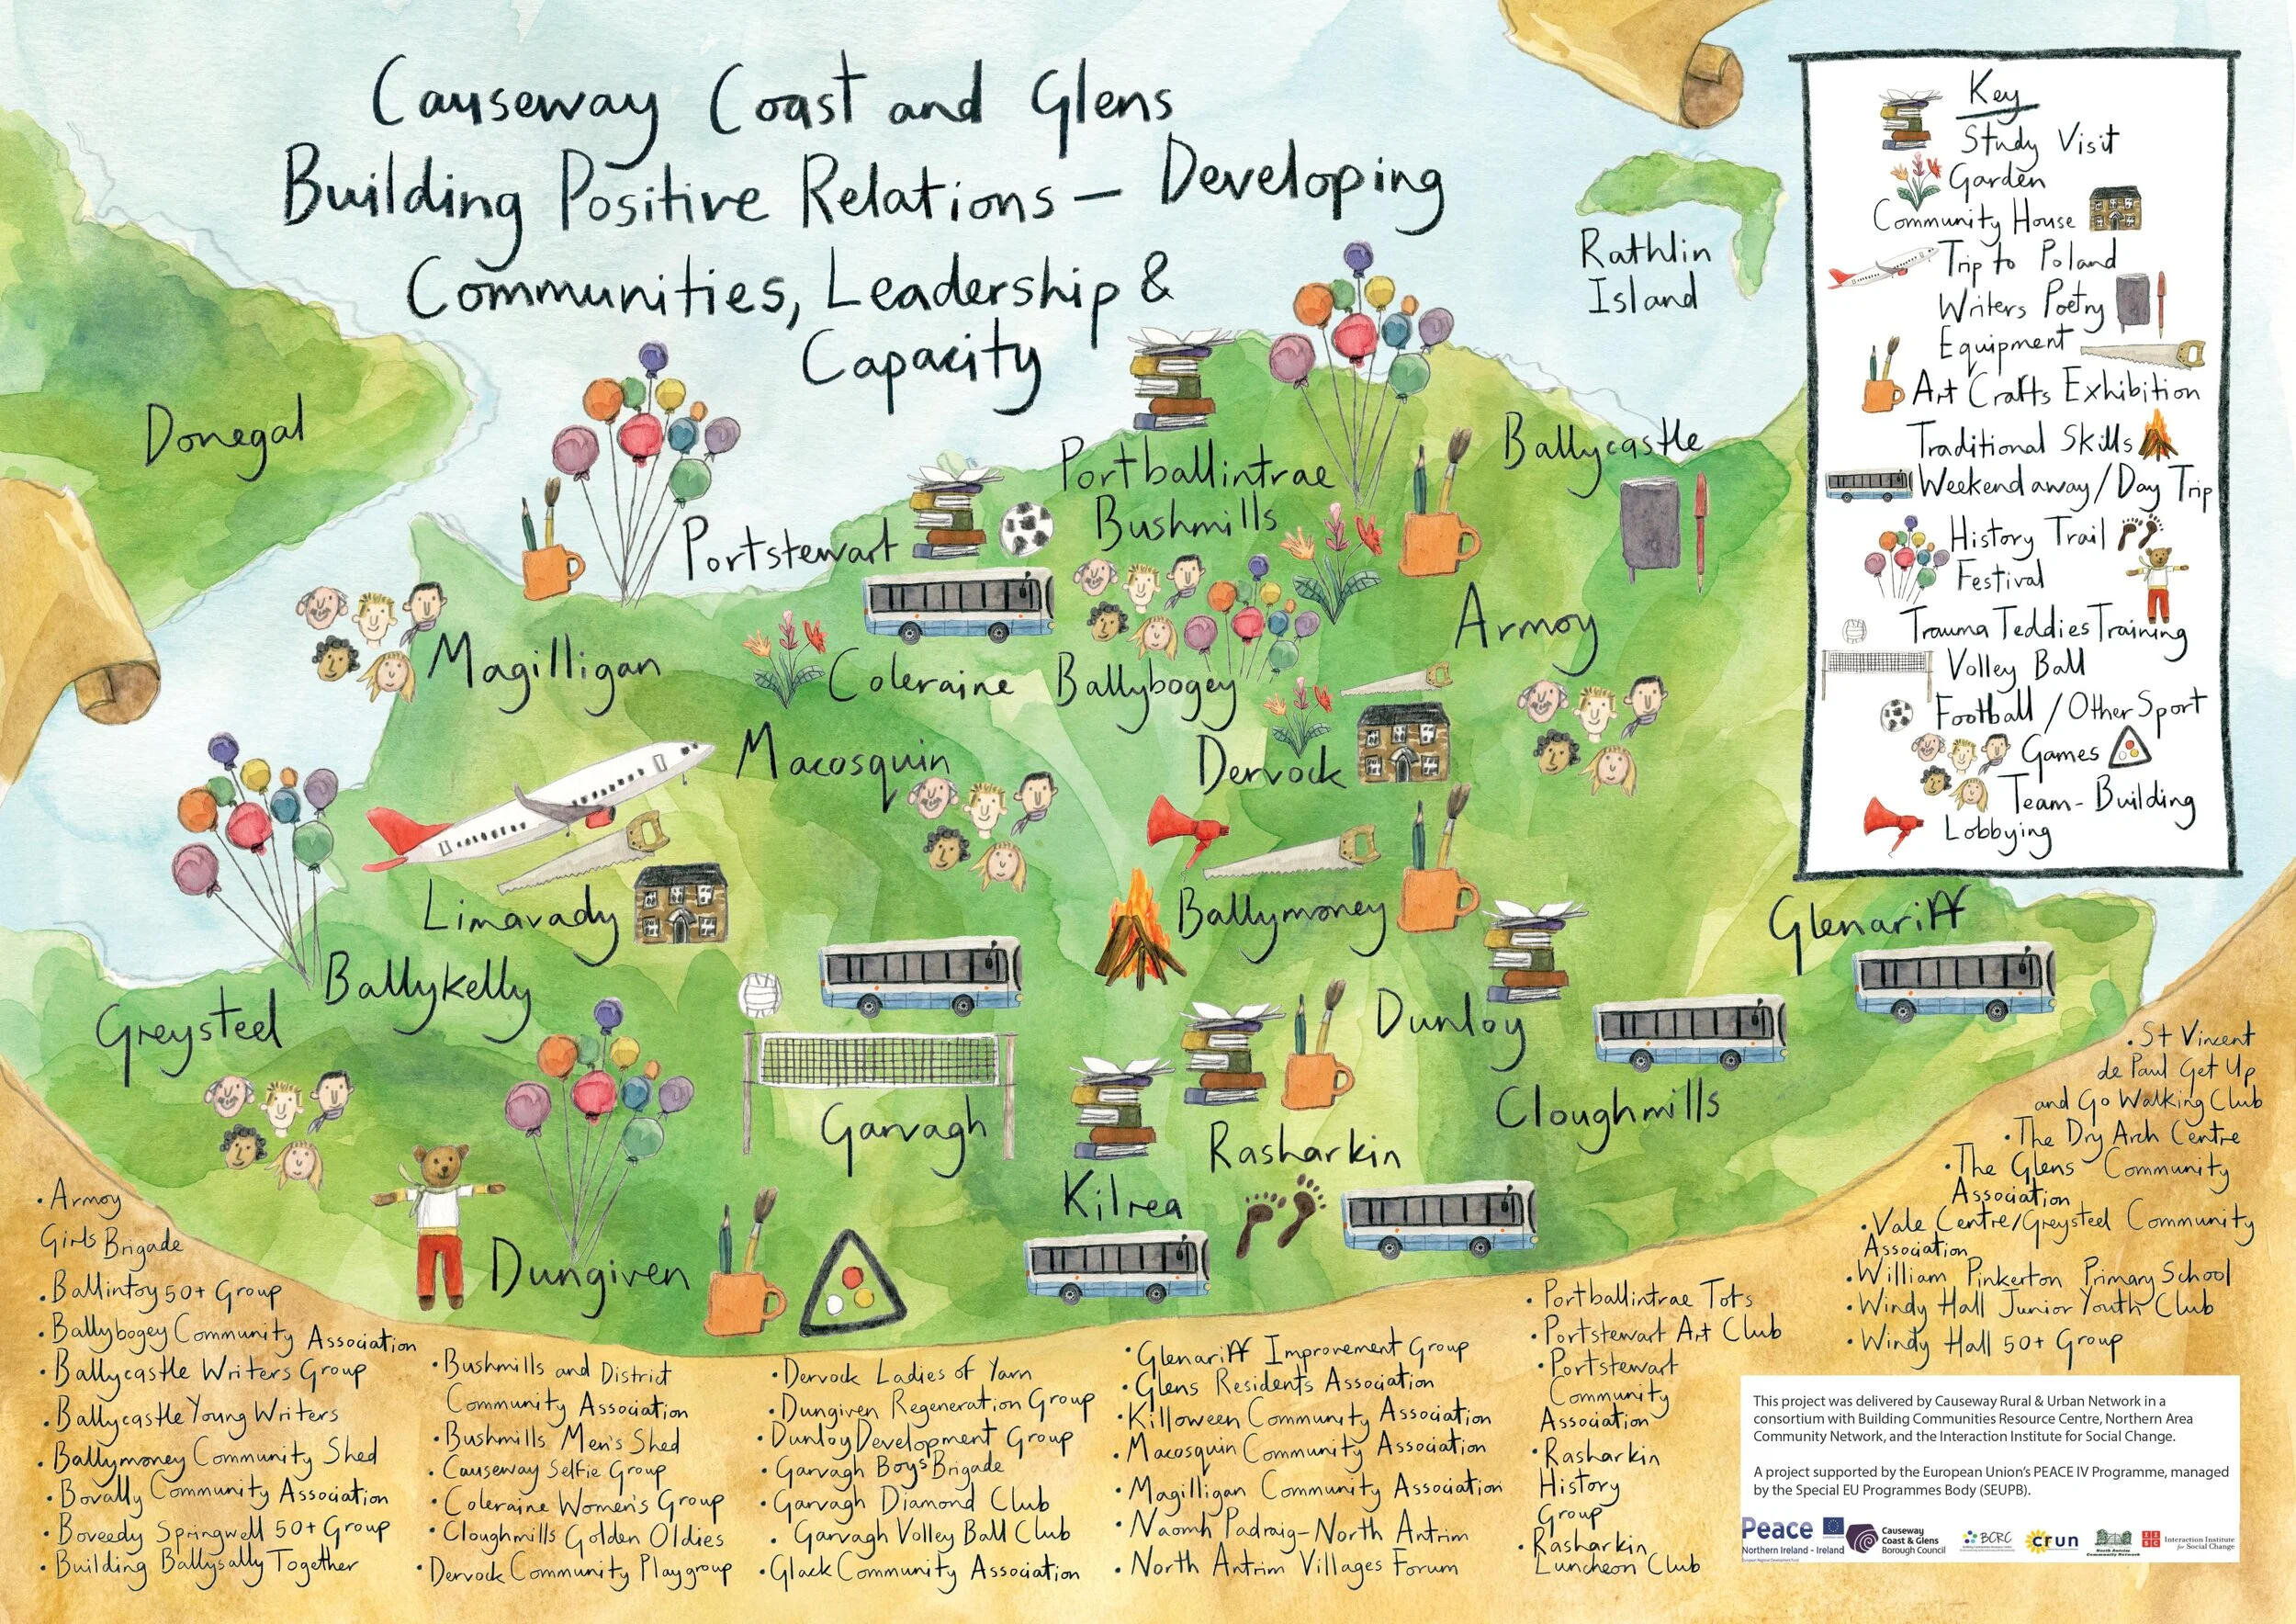 Causeway Coast and Glens
Building Positive Relations – Developing
Communities, Leadership &
Capacity
Donegal
Rathlin
Island
Portballintrae
Ballycastle
Bushmills
Portstewart
Armoy
Magilligan
Coleraine
Ballybogey
Macosquin
Dervock
Limavady
Ballymoney
Glenariff
Ballykelly
Greysteel
Dunloy
Garvagh
Cloughmills
Rasharkin
Kilrea
Dungiven
Key
Study Visit
Garden
Community House
Trip to Poland
Writers Poetry
Equipment
Art Crafts Exhibition
Traditional Skills
Weekend away/Day Trip
History Trail
Festival
Trauma Teddies Training
Volley Ball
Football/Other Sport
Games
Team-Building
Lobbying
• Armoy
Girls Brigade
• Ballintoy 50+ Group
• Ballybogey Community Association
• Ballycastle Writers Group
• Ballycastle Young Writers
• Ballymoney Community Shed
• Bovally Community Association
• Boveedy Springwell 50+ Group
• Building Ballysally Together
• Bushmills and District
Community Association
• Bushmills Men's Shed
• Causeway Selfie Group
• Coleraine Women's Group
• Cloughmills Golden Oldies
• Dervock Community Playgroup
• Dervock Ladies of Yarn
• Dungiven Regeneration Group
• Dunloy Development Group
• Garvagh Boys' Brigade
• Garvagh Diamond Club
• Garvagh Volley Ball Club
• Glack Community Association
• Glenariff Improvement Group
• Glens Residents Association
• Killowen Community Association
• Macosquin Community Association
• Magilligan Community Association
• Naomh Padraig-North Antrim
• North Antrim Villages Forum
• Portballintrae Tots
• Portstewart Art Club
• Portstewart
Community
Association
• Rasharkin
History
Group
• Rasharkin
Luncheon Club
• St Vincent
de Paul Get Up
and Go Walking Club
• The Dry Arch Centre
• The Glens Community
Association
• Vale Centre/Greysteel Community
Association
• William Pinkerton Primary School
• Windy Hall Junior Youth Club
• Windy Hall 50+ Group
This project was delivered by Causeway Rural & Urban Network in a
consortium with Building Communities Resource Centre, Northern Area
Community Network, and the Interaction Institute for Social Change.
A project supported by the European Union's PEACE IV Programme, managed
by the Special EU Programmes Body (SEUPB).
Peace
Northern Ireland - Ireland
Causeway
Coast & Glens
Borough Council
BCRC
crun
Interaction Institute
for Social Change